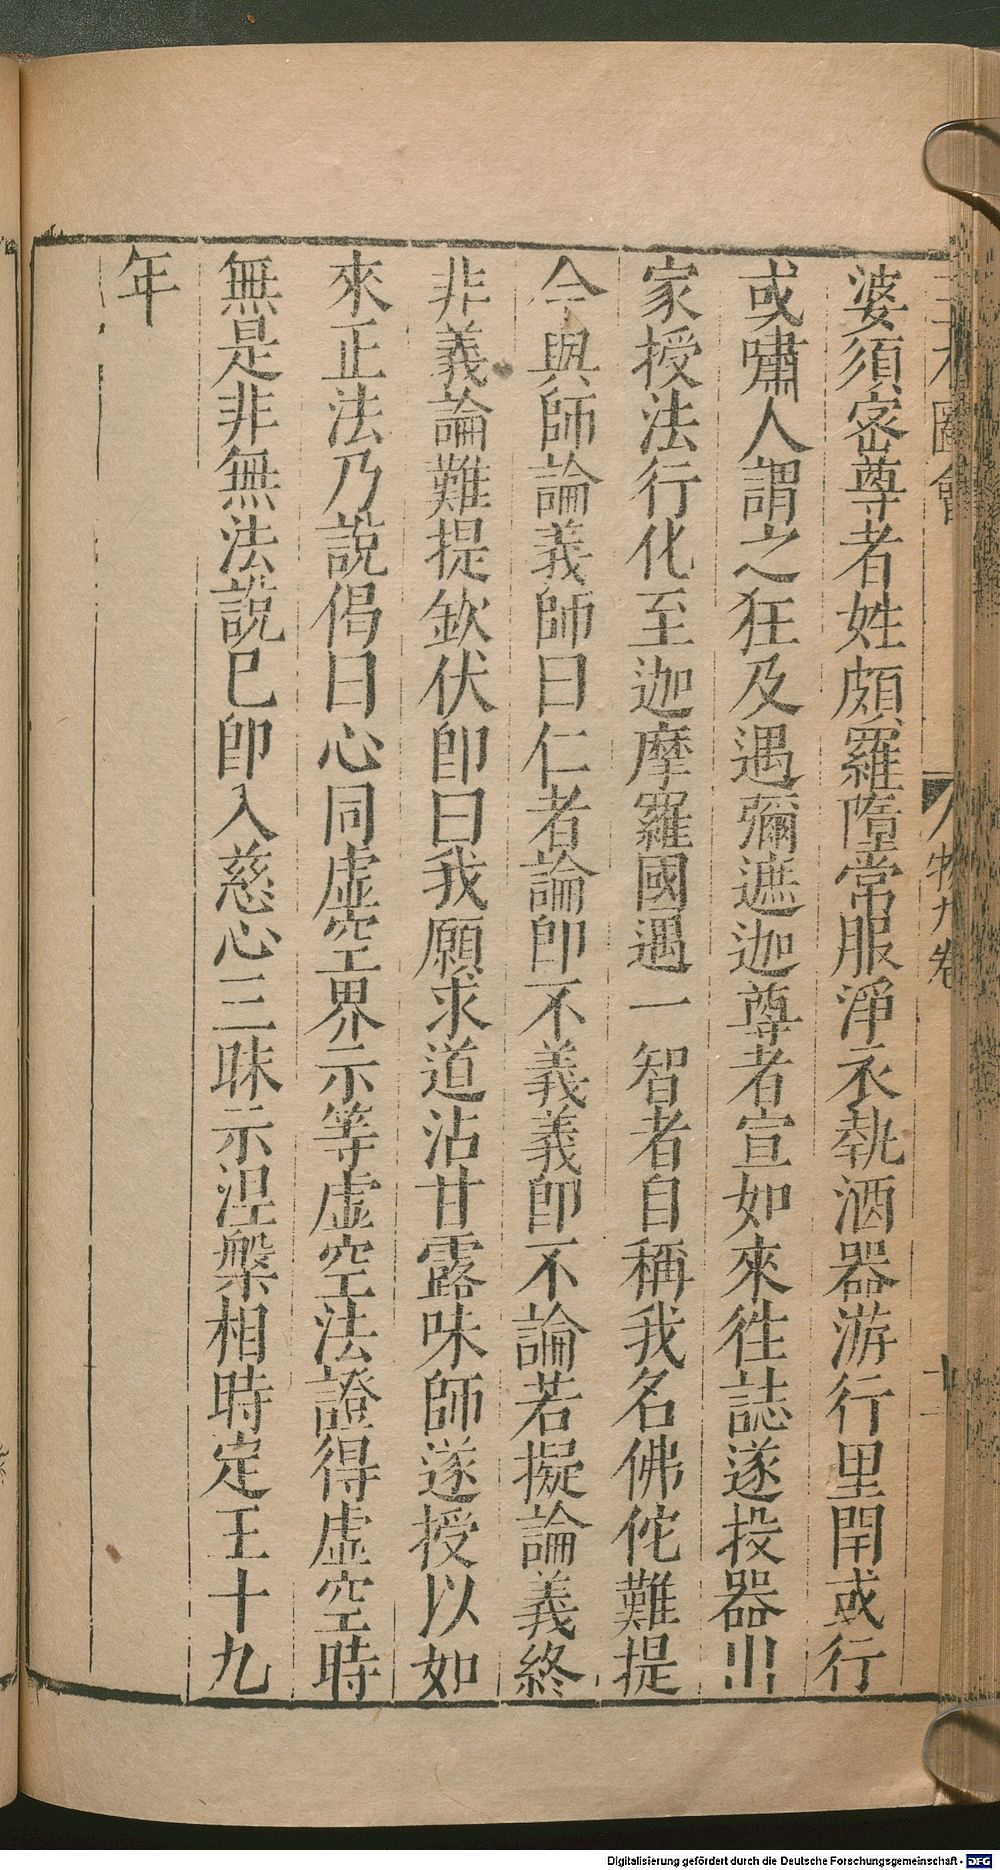 三才圖會
人物九卷
婆須密尊者姓頗羅墮常服淨衣執酒器游行里閈或行
或嘯人謂之狂及遇彌遮迦尊者宣如來徃誌遂投器出
家授法行化至迦摩羅國遇一智者自稱我名佛佗難提
今與師論義師曰仁者論即不義義即不論若擬論義終
非義論難提欽伏即曰我願求道沾甘露味師遂授以如
來正法乃說偈曰心同虛空界示等虛空法證得虛空時
無是非無法說已即入慈心三昧示涅槃相時定王十九
年
Digitalisierung gefördert durch die Deutsche Forschungsgemeinschaft - DFG